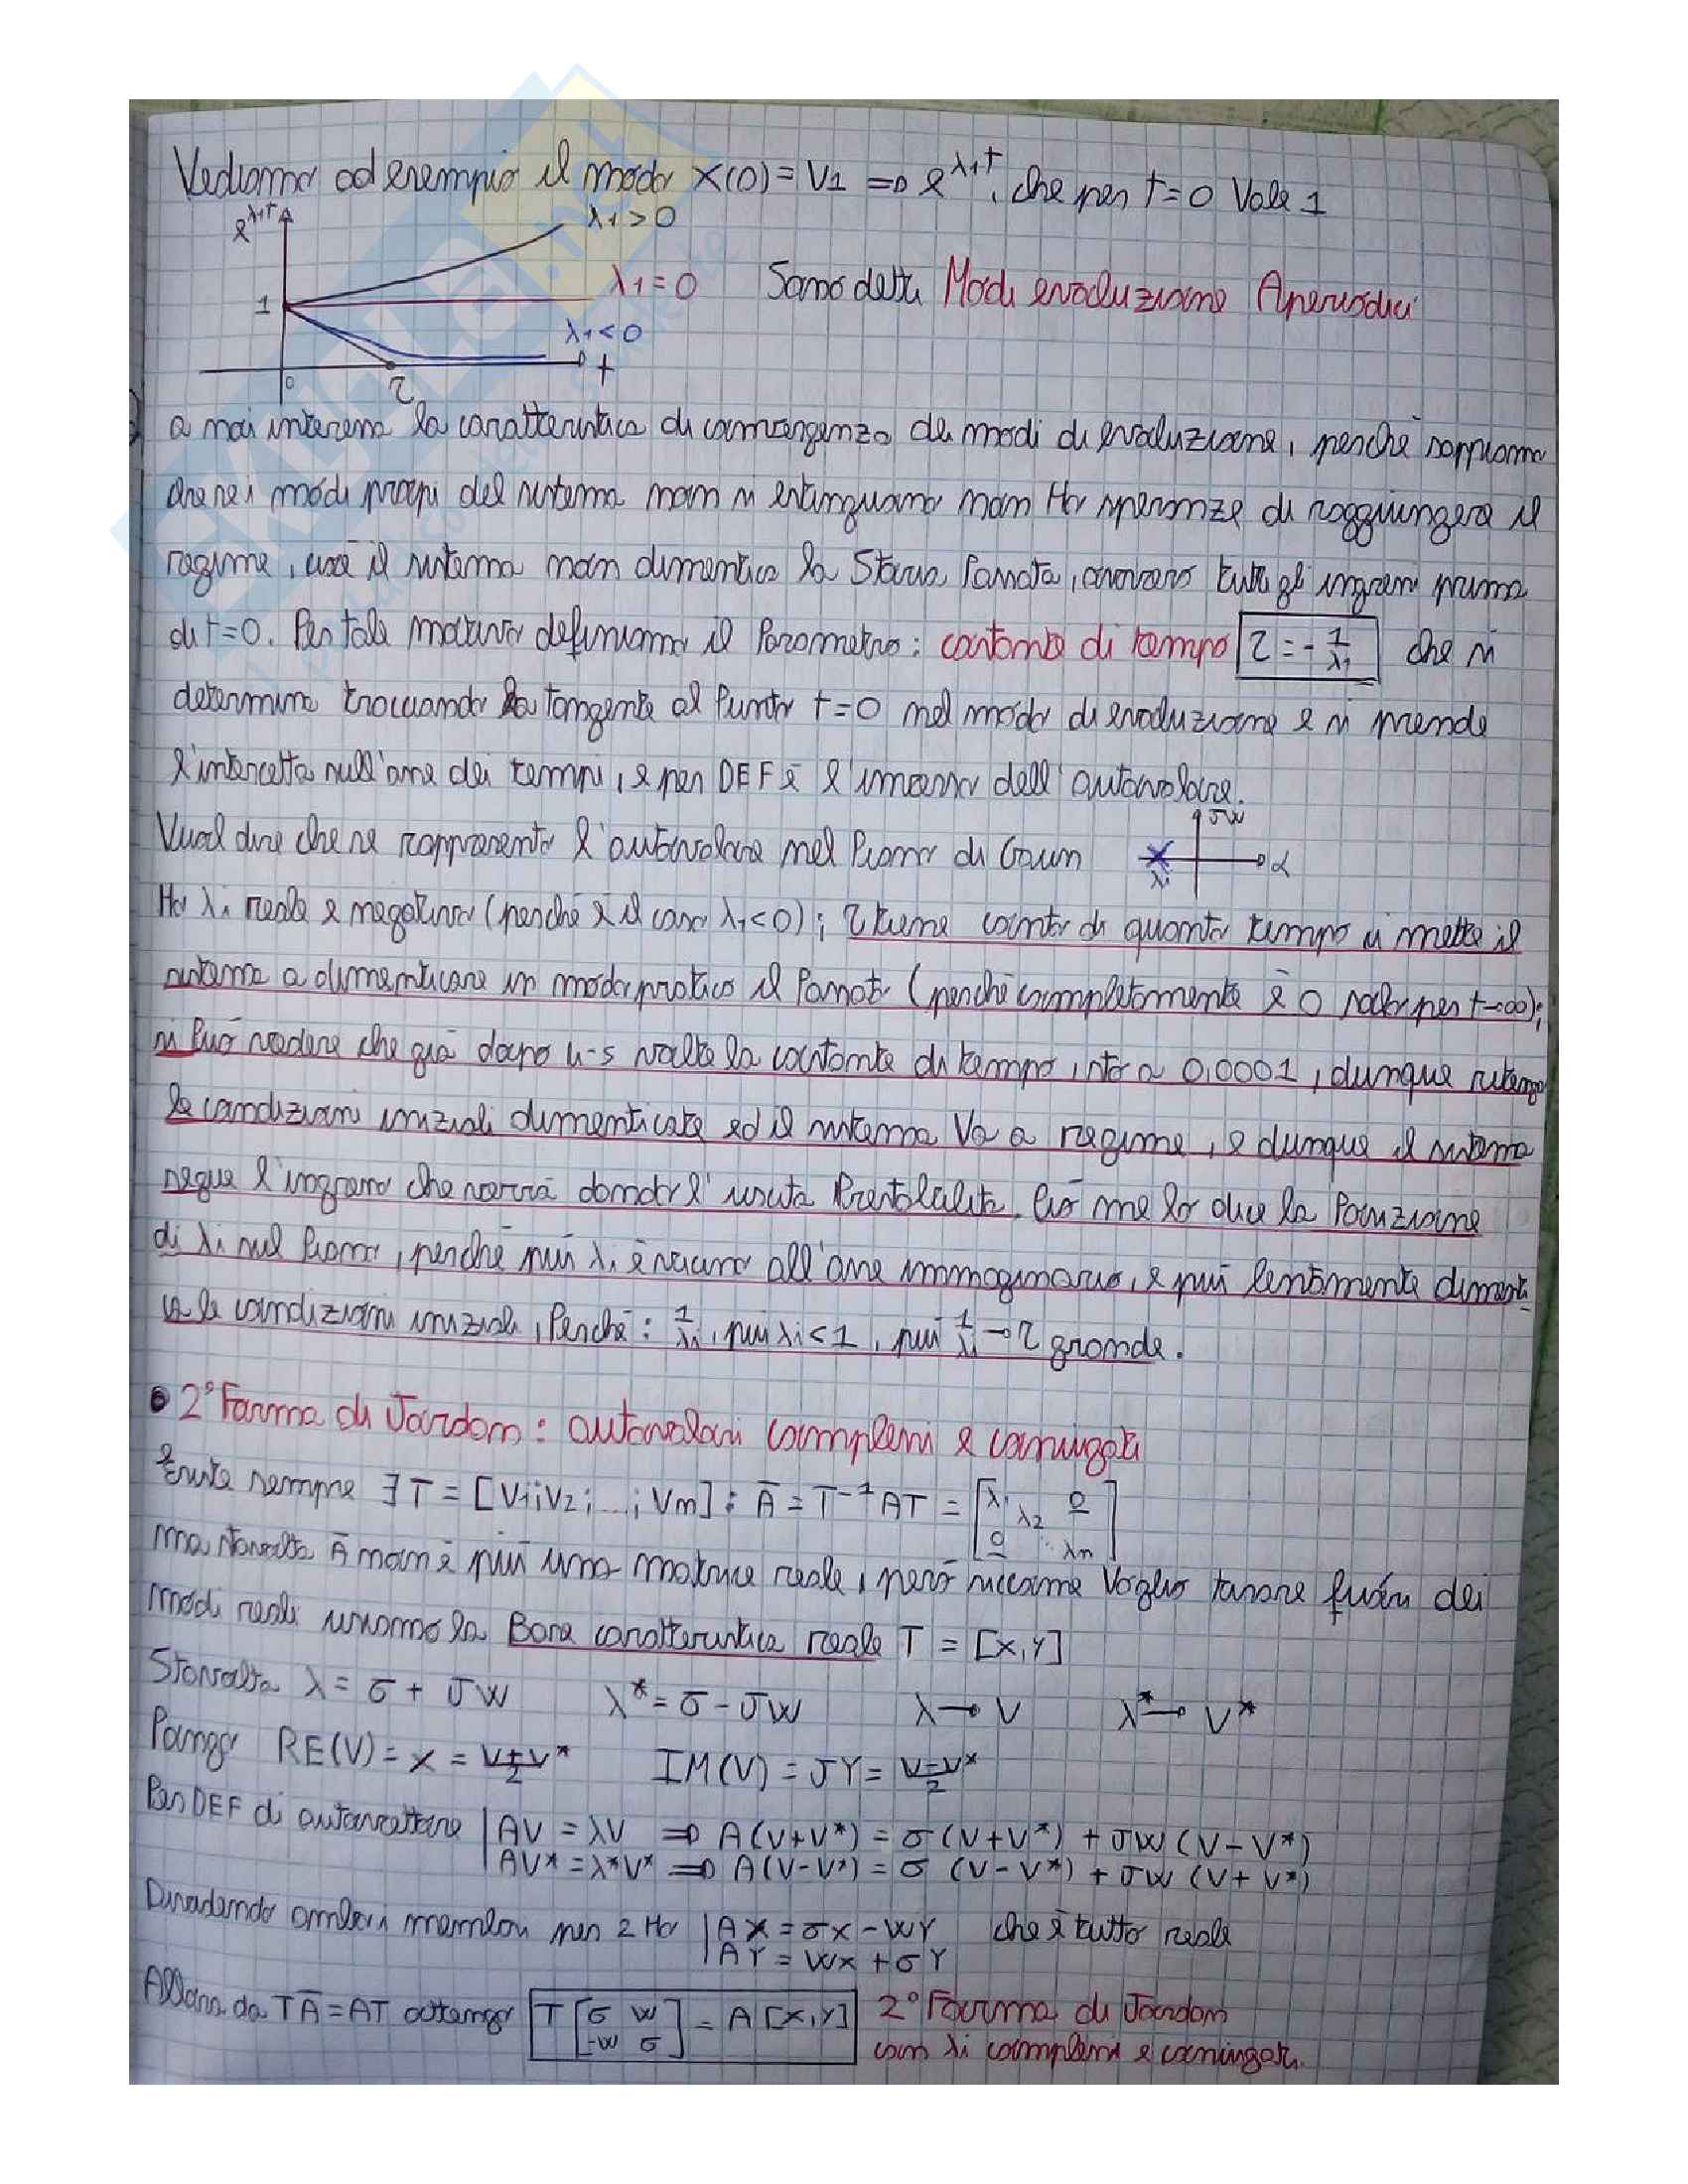 Vediamo ad esempio il modo X(0) = V1 => e^λ1t, che per t=0 Vale 1
e^λ1t
λ1>0
1
λ1=0 Sono detti Modi evoluzione Aperiodici
λ1<0
0 τ t
a noi interessa la caratteristica di convergenza dei modi di evoluzione, perché sappiamo
che se i modi propri del sistema non si estinguono non Ho speranze di raggiungere il
regime, cioè il sistema non dimentica la Storia Passata, ovvero tutti gli ingressi prima
di t=0. Per tale motivo definiamo il Parametro: costante di tempo τ = - 1/λ1 che si
determina tracciando la tangente al Punto t=0 nel modo di evoluzione e si prende
l'intercetta sull'asse dei tempi, e per DEF è l'inverso dell'autovalore.
Vuol dire che se rappresento l'autovalore nel Piano di Gauss
JW
λi α
Ho λi reale e negativo (perché è il caso λ1<0); τ tiene conto di quanto tempo ci mette il
sistema a dimenticare in modo pratico il Passato (perché completamente è 0 solo per t→∞);
si può vedere che già dopo 4-5 volte la costante di tempo, sto a 0.0001, dunque ritengo
le condizioni iniziali dimenticate ed il sistema Va a regime, e dunque il sistema
segue l'ingresso che verrà dando l'uscita Prestabilita. Ciò me lo dice la Posizione
di λi nel Piano, perché più λi è vicino all'asse immaginario, e più lentamente dimenti-
ca le condizioni iniziali, Perché: 1/λi, più λi<1, più 1/λi → τ grande.
• 2° Forma di Jordan: autovalori complessi e coniugati
Esiste sempre ∃ T = [V1; V2; ...; Vn] : Ā = T⁻¹AT = [λ1 λ2 0 0 ⋱ λn]
ma stavolta Ā non è più una matrice reale, però siccome Voglio tirare fuori dei
modi reali usiamo la Base caratteristica reale T = [X,Y]
Stavolta λ = σ + JW λ* = σ - JW λ → V λ* → V*
Pongo RE(V) = X = V+V*/2 IM(V) = JY = V-V*/2
Per DEF di autovettore | AV = λV => A(V+V*) = σ(V+V*) + JW(V-V*)
| AV* = λ*V* => A(V-V*) = σ(V-V*) + JW(V+V*)
Dividendo ambo i membri per 2 Ho | AX = σX - WY che è tutto reale
| AY = WX + σY
Allora da TĀ = AT ottengo T [σ W -W σ] = A [X,Y] 2° Forma di Jordan
con λi complessi e coniugati.